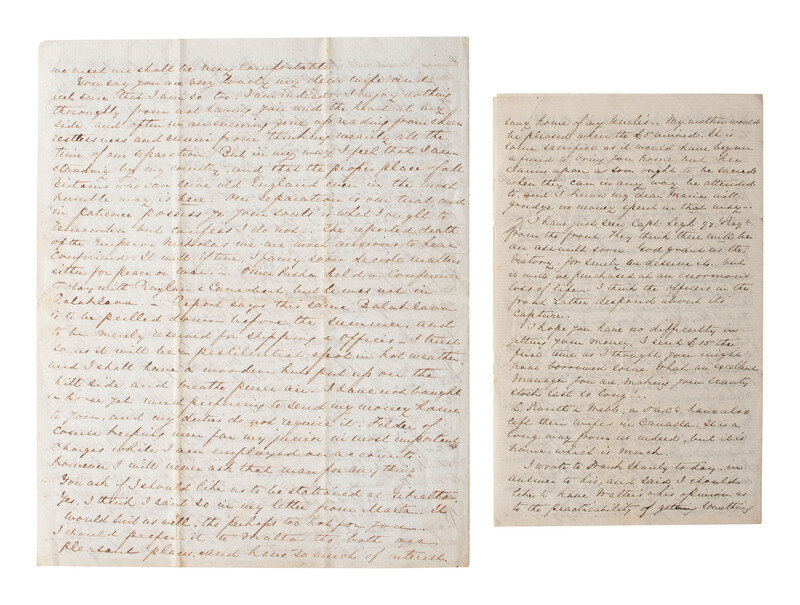 we meet we shall be very comfortable.
You say you are very lonely my dear wife, and
just sure that I am so too. I am indeed. I enjoy nothing
thoroughly from not having you and the kind at my
side and often in an evening give up reading from sheer
restlessness and ennui from thinking wearily all the
time of our separation. But in any way I feel that I am
standing by my country, and that the proper place of all
Britains who can serve old England even in the most
humble way is here. Our separation is our trial and
in patience possess ye your souls is what I ought to
remember but confess I do not. The reported death
of the Emperor Nicholas we are most anxious to hear
confirmed. It will, if true, I fancy soon decide matters
either for peace or war. Omer Pasha held a conference
today with Raglan & Canrobert, but he was not in
Balaklava. Report says this same Balaklava
is to be pulled down before the summer, and
to be merely reserved for shipping & offices. I trust
so as it will be a pestilential spot in hot weather
and I shall have a wooden hut put up on the
hill side and breathe purer air. I have not bought
a horse yet much preferring to send my money home
to you, and my duties do not require it. Filder of
course keeping men far my junior in most important
charges while I am employed on accounts.
however I will never ask that man for any thing.
You ask if I should like us to be stationed at Gibraltar
Yes, I think I said so in my letter from Malta. It
would suit us well, tho' perhaps too hot for you.
I should prefer it to Malta tho' both are
pleasant places and have so much of interest.
home of my Uncles. My mother would
be pleased when the £5 arrived. It is
some sacrifice as it would have
to bring you home, but the
claims upon a son ought to be sacred
when they can in any way be attended
to, and I know my dear Maria will
grudge no money spent in that way.
I have just seen Capt. Legh 97 Regt
from the front. They think there will be
an assault soon. God grant us the
victory, for surely we deserve it, but
it will be purchased at an enormous
loss of life. I think the officers in the
front rather despond about its
capture.
I hope you have no difficulty in
getting your money. I send £15 the
first time as I thought you might
have borrowed some. What an excellent
manager you are making your scanty
stock last so long.
& Webb, a have also
left their wives in Canada. It is a
long way from us indeed, but it is
home, which is much.
I wrote to Frank today, in
answer to his, and said I should
like to have Walter's & his opinion as
to the practicability of getting something